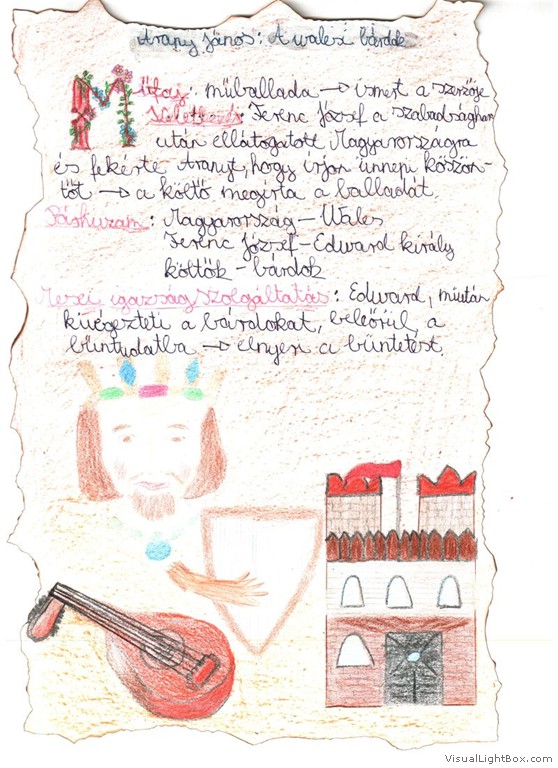 Arany János: A walesi bárdok
Műfaj: műballada → ismert a szerzője
Születése: Ferenc József a szabadságharc
után ellátogatott Magyarországra
és felkérte Aranyt, hogy írjon ünnepi köszön-
tőt → a költő megírta a balladát.
Párhuzam: Magyarország – Wales
Ferenc József – Edward király
költők – bárdok
Mesei igazságszolgáltatás: Edward, miután
kivégezteti a bárdokat, beleőrül a
bűntudatba → elnyeri a büntetést.
VisualLightBox.com